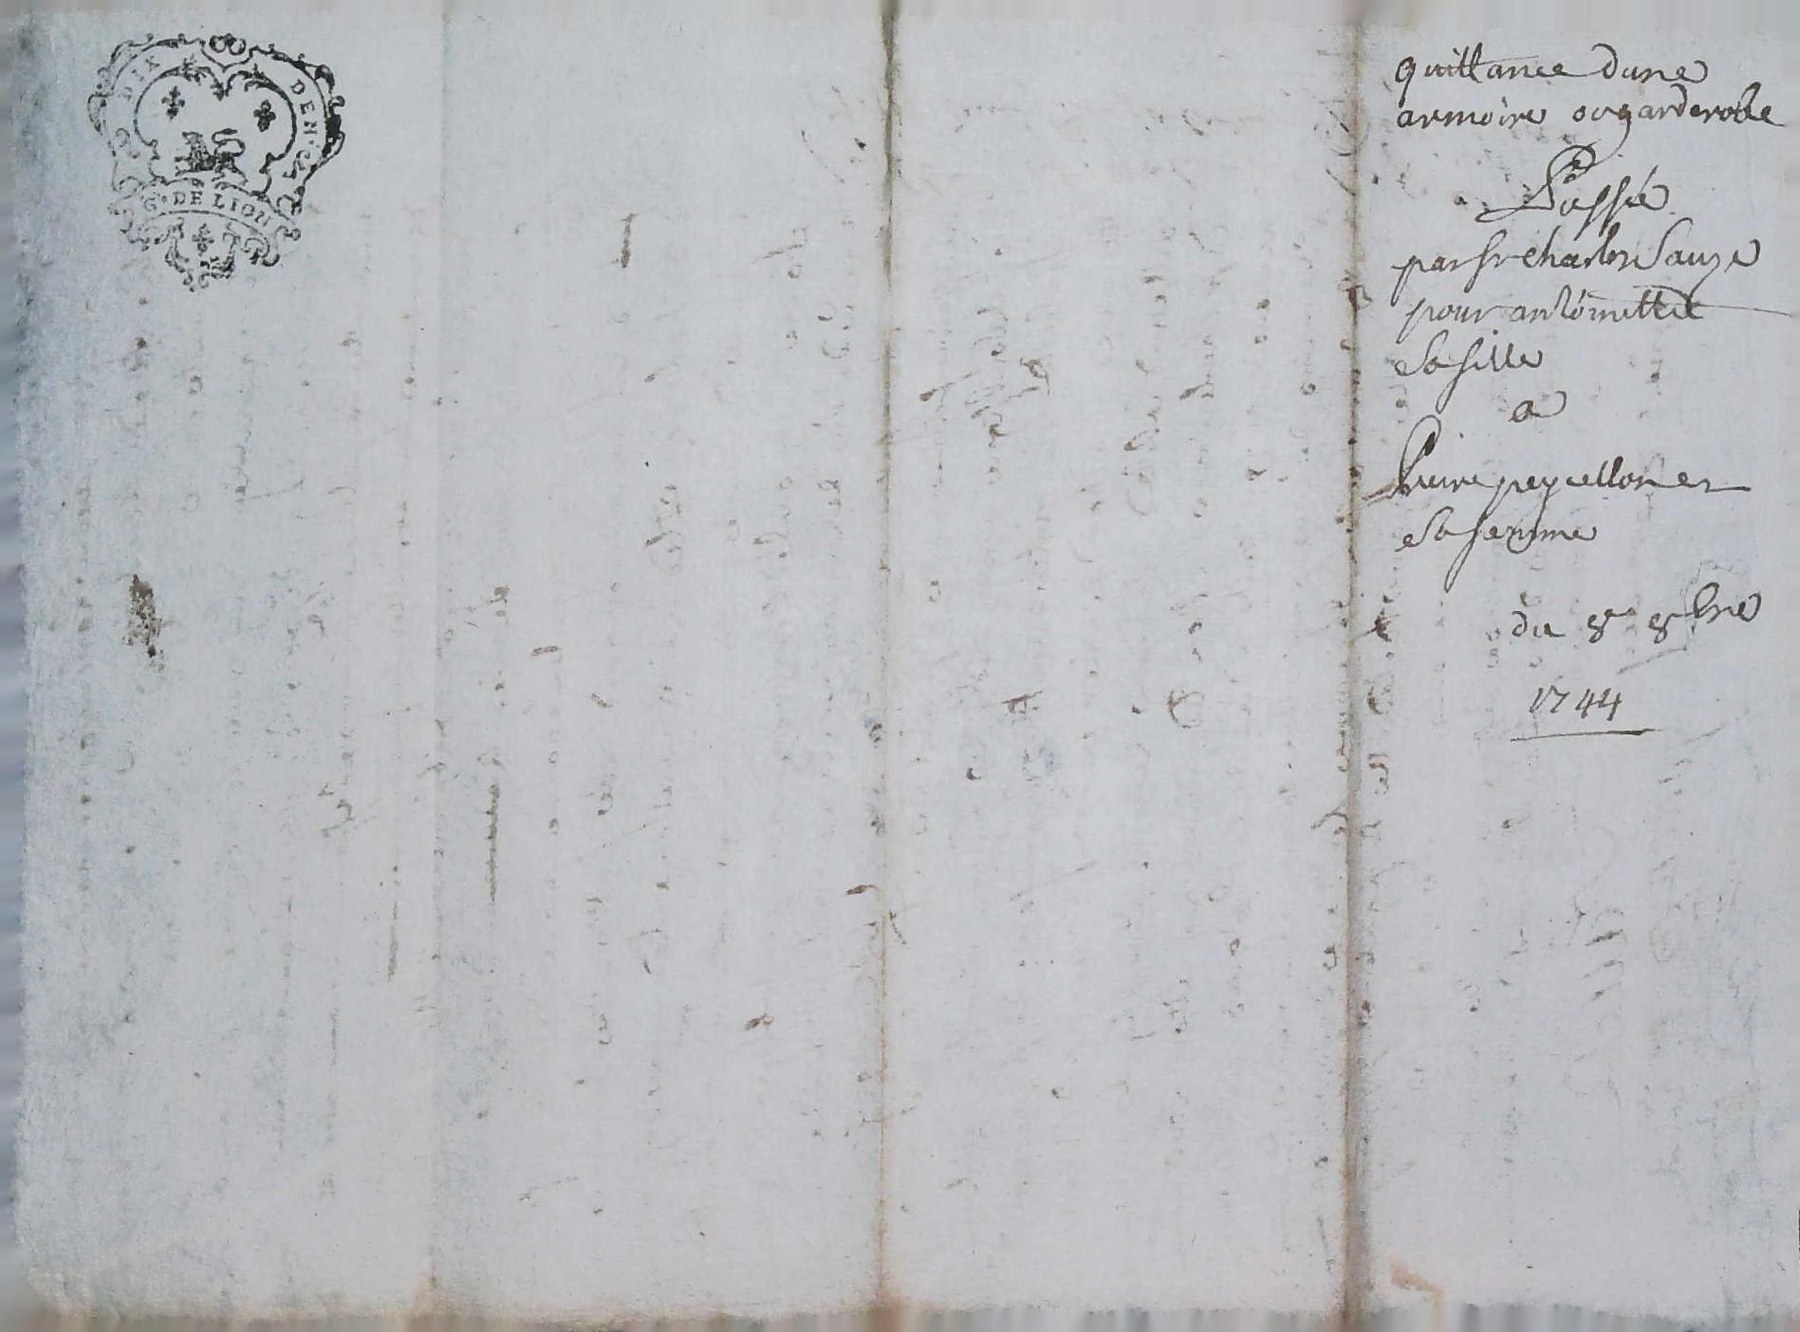 DIX DEN.
G. DE LION
quittance dune
armoire ou garderobe
Passée
par sr charles Sauze
pour antoinette
sa fille
a
Pierre peycellon et
sa femme
du 8e 8bre
1744